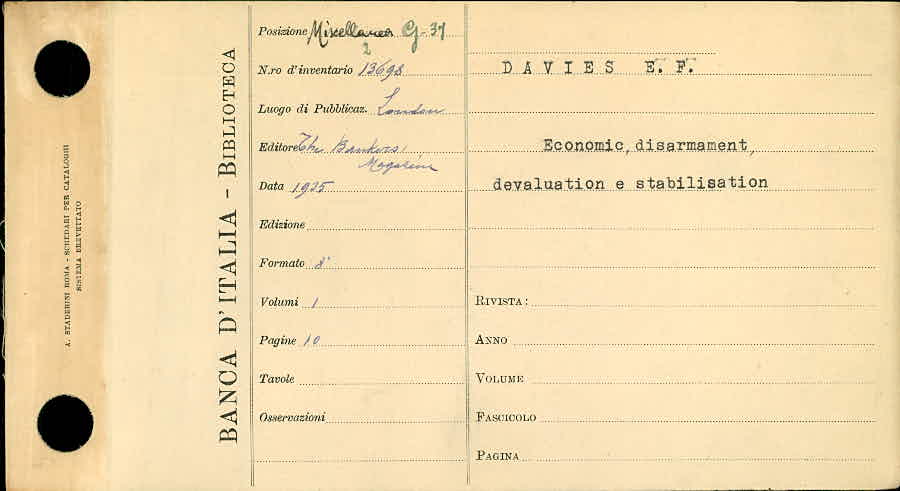 A. STADERINI ROMA - SCHEDARI PER CATALOGHI
SISTEMA BREVETTATO
BANCA D'ITALIA - BIBLIOTECA
Posizione Miscellanea G-37
2
N.ro d'inventario 13698
Luogo di Pubblicaz. London
Editore The Bankers'
Magazine
Data 1935
Edizione
Formato 8°
Volumi 1
Pagine 10
Tavole
Osservazioni
DAVIES E. F.
Economic, disarmament,
devaluation e stabilisation
RIVISTA:
ANNO
VOLUME
FASCICOLO
PAGINA